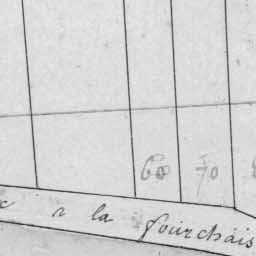 60 70
à la fourchais